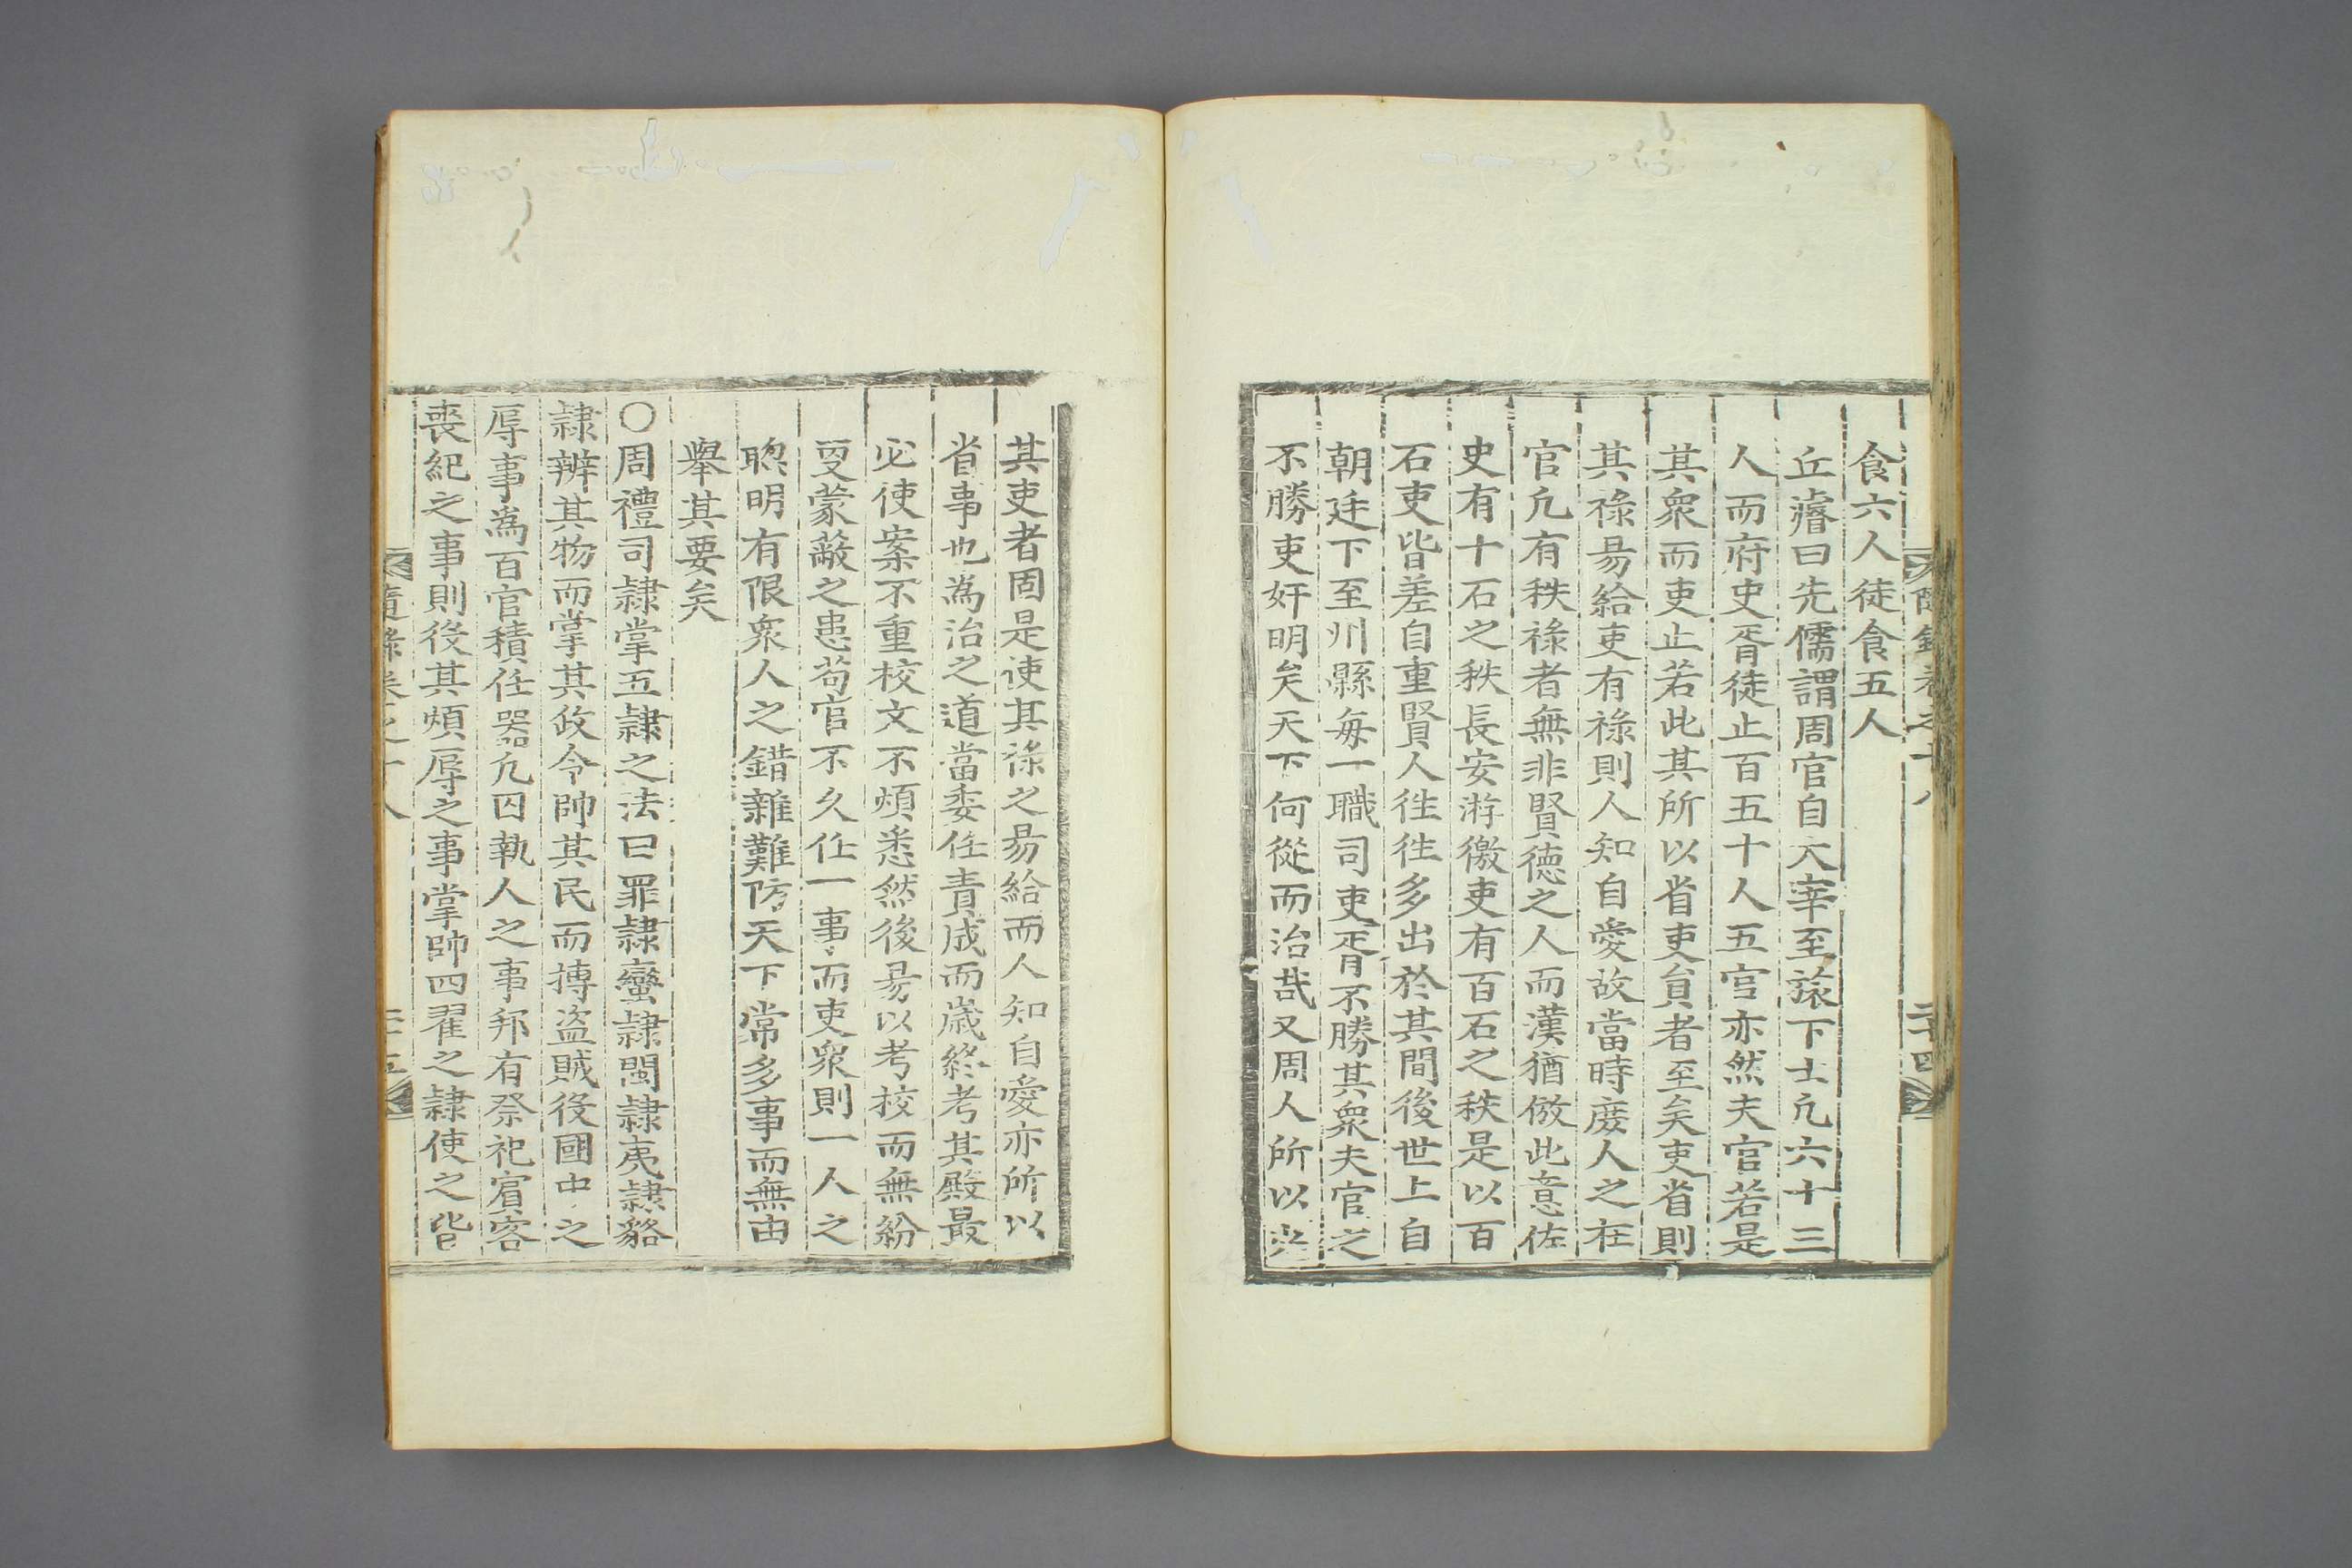 食六人徒食五人
丘濬曰先儒謂周官自大宰至旅下士凢六十三
人而府史胥徒止百五十人五官亦然夫官若是
其衆而吏止若此其所以省吏貟者至矣吏省則
其祿易給吏有祿則人知自愛故當時庶人之在
官凢有秩祿者無非賢德之人而漢猶倣此意佐
史有十石之秩長安游徼吏有百石之秩是以百
石吏皆差自重賢人徃徃多出於其間後世上自
朝廷下至州縣每一職司吏胥不勝其衆夫官之
不勝吏奸明矣天下何從而治哉又周人所以少
其吏者固是使其祿之易給而人知自愛亦所以
省事也為治之道當委任責成而歲終考其殿最
必使案不重校文不煩悉然後易以考校而無紛
叟蒙蔽之患苟官不久任一事而吏衆則一人之
聦明有限衆人之錯雜難防天下常多事而無由
舉其要矣
○周禮司隷掌五隷之法曰罪隷蠻隷閩隷夷隷貉
隷辨其物而掌其政令帥其民而搏盗賊役國中之
辱事為百官積任噐凢囚執人之事邦有祭祀賓客
喪紀之事則役其煩辱之事掌帥四翟之隷使之皆